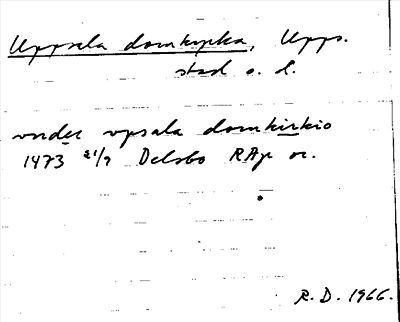 Uppsala domkyrka, Upps.
stad o. l.
vnder vpsala domkirkio
1473 21/7 Delsbo RAp or.
R. D. 1966.